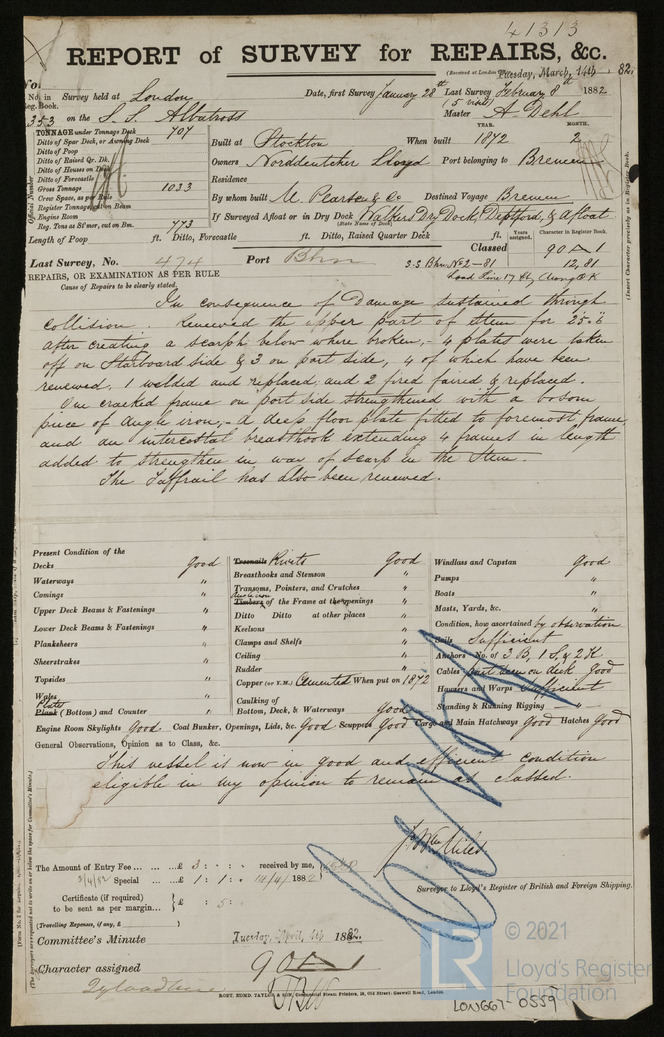 41313
REPORT of SURVEY for REPAIRS, &c.
(Received at London Tuesday, March 14th, 82.
No. in Reg. Book. Survey held at London Date, first Survey January 28th Last Survey February 8th 1882
(5 visits)
353 on the S.S. Albatross Master A Dehl
TONNAGE under Tonnage Deck 707
Ditto of Spar Deck, or Awning Deck
Ditto of Poop
Ditto of Raised Qr. Dk.
Ditto of Houses on Deck
Ditto of Forecastle
Gross Tonnage 1033
Crew Space, as per Rule
Register Tonnage, cut on Beam
Engine Room
Reg. Tons as St'mer, cut on Bm. 773
Official Number
YEAR. MONTH.
Built at Stockton When built 1872 2
Owners Norddeutcher Lloyd Port belonging to Bremen
Residence
By whom built M. Pearse & Co Destined Voyage Bremen
If Surveyed Afloat or in Dry Dock Walkers Dry Dock, Deptford, & Afloat
(State Name of Dock)
Length of Poop ft. Ditto, Forecastle ft. Ditto, Raised Quarter Deck ft.
Years assigned. Character in Register Book.
Classed 90A1
12,81
Last Survey, No. 474 Port Bhn S.S. Bhn. No 2-81
REPAIRS, OR EXAMINATION AS PER RULE
Cause of Repairs to be clearly stated.
In consequence of Damage sustained through
collision. Renewed the upper part of Stem for 25.6
after creating a scarph below where broken,- 4 plates were taken
off on Starboard side & 3 on port side, 4 of which have been
renewed, 1 welded and replaced, and 2 fired faired & replaced.
One cracked frame on port side strengthened with a bosom
piece of angle iron,- a deep floor plate fitted to foremost frame,
and an intercostal breasthook extending 4 frames in length
added to strengthen in way of scarp in the Stem.
The Taffrail has also been renewed.
Present Condition of the
Decks good
Waterways "
Comings "
Upper Deck Beams & Fastenings "
Lower Deck Beams & Fastenings "
Planksheers "
Sheerstrakes "
Topsides "
Wales "
Plates
Plank (Bottom) and Counter "
Treenails Rivets good
Breasthooks and Stemson "
Transoms, Pointers, and Crutches "
Timbers of the Frame at the openings "
Ditto Ditto at other places "
Keelsons "
Clamps and Shelfs "
Ceiling "
Rudder "
Copper (or Y.M.) Cemented When put on 1872
Caulking of
Bottom, Deck, & Waterways Good
Windlass and Capstan good
Pumps "
Boats "
Masts, Yards, &c. "
Condition, how ascertained by observation
Sails Sufficient
Anchors No. of 3 B, 1 S, & 2 K
Cables part seen on deck Good
Hawsers and Warps Sufficient
Standing & Running Rigging — " —
Engine Room Skylights Good Coal Bunker, Openings, Lids, &c. Good Scuppers Good Cargo and Main Hatchways Good Hatches Good
General Observations, Opinion as to Class, &c.
This vessel is now in good and efficient condition
eligible in my opinion to remain as classed.
Surveyor to Lloyd's Register of British and Foreign Shipping.
The Amount of Entry Fee ... ...£ 3 : : received by me,
3/4/82 Special ... ...£ 1 : 1 : 14/4/ 1882
Certificate (if required) to be sent as per margin... } £ : 5 :
(Travelling Expenses, if any, £ )
Committee's Minute Tuesday, April, 4th 1882.
Character assigned 90A1
ROBT. EDMD. TAYLOR & SON, Commercial Steam Printers, 19, Old Street, Goswell Road, London.
LR
© 2021
Lloyd's Register
Foundation
LON667-0559